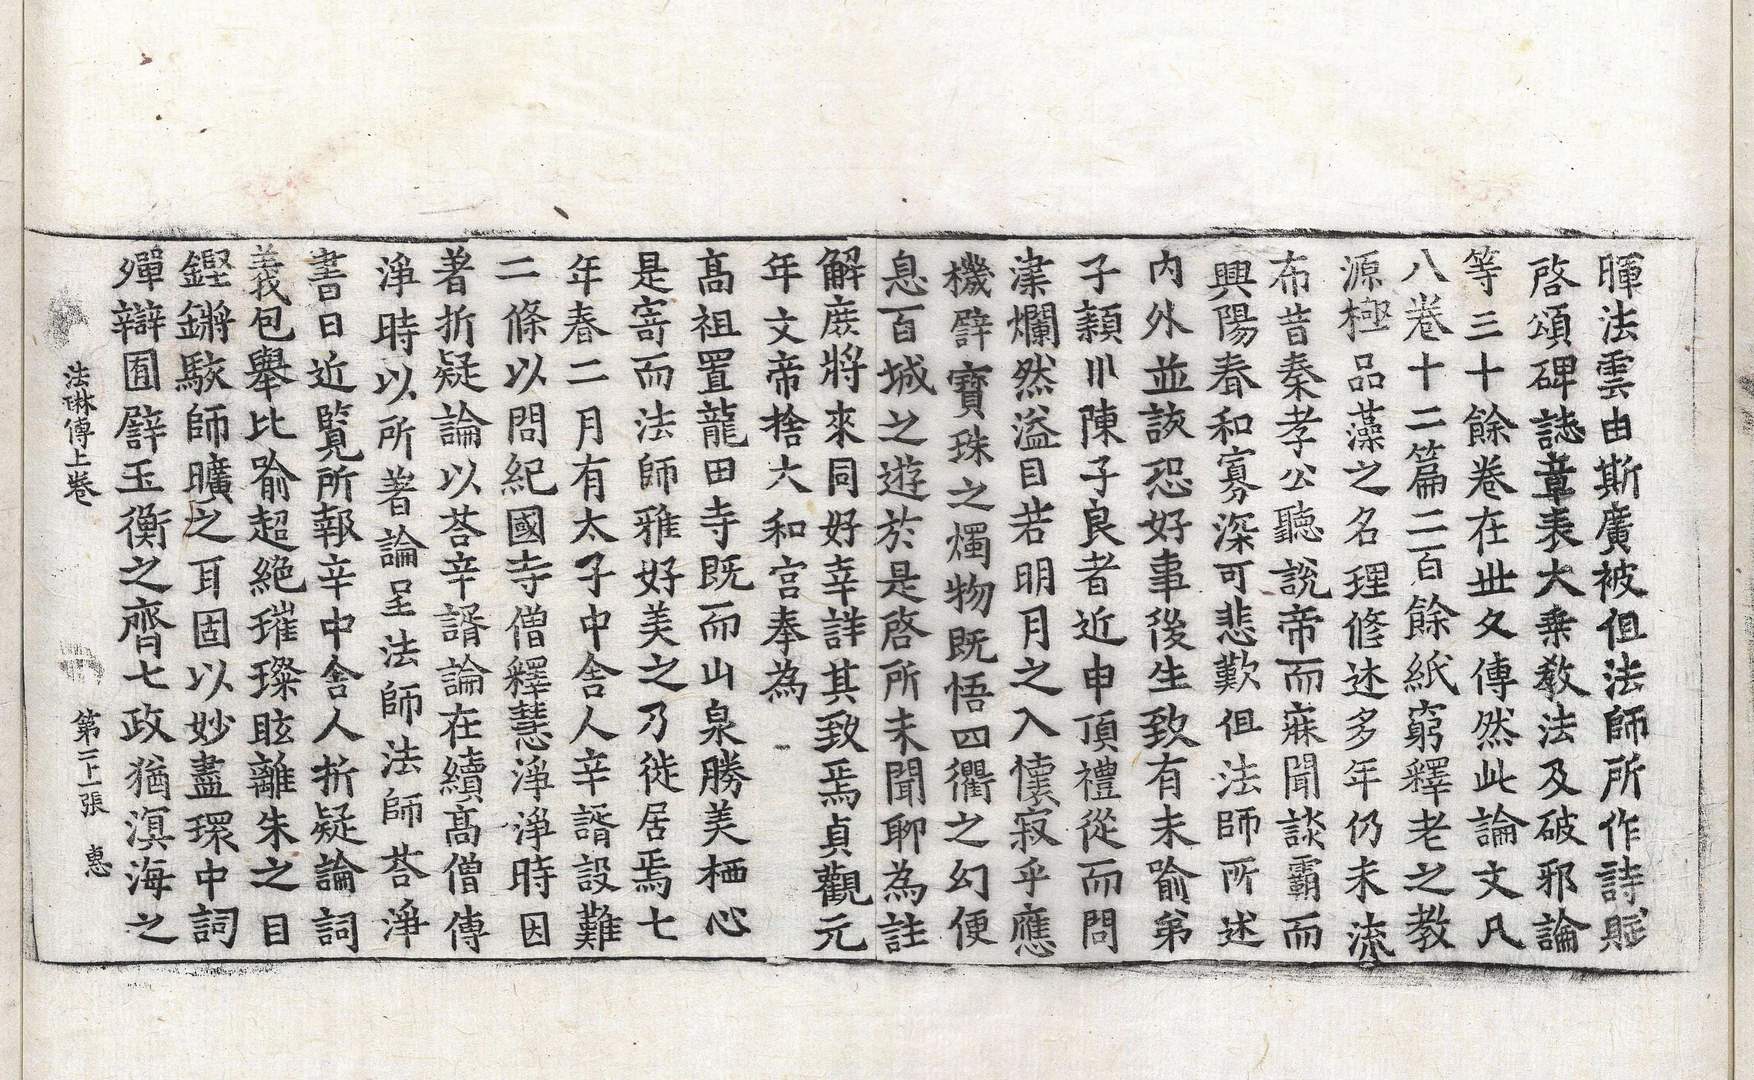 暉法雲由斯廣被但法師所作詩賦
啓頌碑誌章表大乗教法及破邪論
等三十餘卷在世久傳然此論文凡
八卷十二篇二百餘紙窮釋老之教
源極品藻之名理修述多年仍未流
布昔秦孝公聽說帝而寐聞談霸而
興陽春和寡深可悲歎但法師所述
内外並該恐好事後生致有未喻弟
子穎川陳子良者近申頂禮從而問
津爛然溢目若明月之入懷寂乎應
機譬寶珠之燭物既悟四衢之幻便
息百城之遊於是啓所未聞聊為註
解庶將來同好幸詳其致焉貞觀元
年文帝捨大和宫奉為
髙祖置龍田寺既而山泉勝美栖心
是寄而法師雅好美之乃徙居焉七
年春二月有太子中舎人辛諝設難
二條以問紀國寺僧釋慧淨淨時因
著折疑論以荅辛諝論在續髙僧傳
淨時以所著論呈法師法師荅淨
書曰近覽所報辛中舎人折疑論詞
義包舉比喻超絶璀璨眩離朱之目
鏗鏘駭師曠之耳固以妙盡環中詞
殫辯囿譬玉衡之齊七政猶溟海之
法琳傳上卷 第二上張 惠